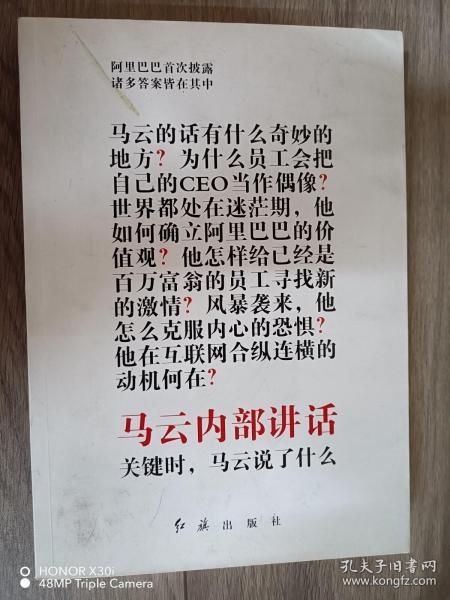 阿里巴巴首次披露
诸多答案皆在其中
马云的话有什么奇妙的
地方？为什么员工会把
自己的CEO当作偶像？
世界都处在迷茫期，他
如何确立阿里巴巴的价
值观？他怎样给已经是
百万富翁的员工寻找新
的激情？风暴袭来，他
怎么克服内心的恐惧？
他在互联网合纵连横的
动机何在？
马云内部讲话
关键时，马云说了什么
红旗出版社
HONOR X30i
48MP Triple Camera
孔夫子旧书网
www.kongfz.com